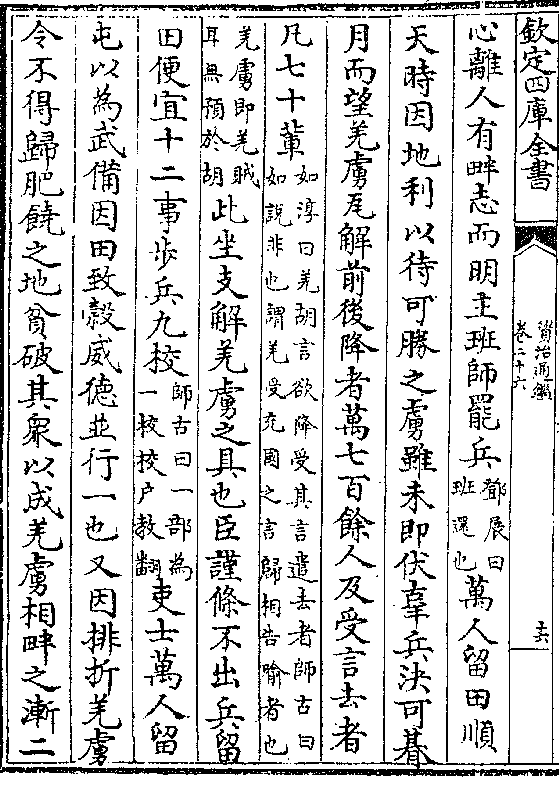 欽定四庫全書
資治通鑑
卷二十六
十六
心離人有畔志而明主班師罷兵鄧展曰班還也萬人留田順
天時因地利以待可勝之虜雖未即伏辜兵決可朞
月而望羌虜瓦解前後降者萬七百餘人及受言去者
凡七十輩如淳曰羌胡言欲降受其言遣去者師古曰如說非也謂羌受充國之言歸相告喻者也
羌虜即羌賊耳無預於胡此坐支解羌虜之具也臣謹條不出兵留
田便宜十二事步兵九校師古曰一部為一校校户教翻吏士萬人留
屯以為武備因田致穀威德並行一也又因排折羌虜
令不得歸肥饒之地貧破其衆以成羌虜相畔之漸二